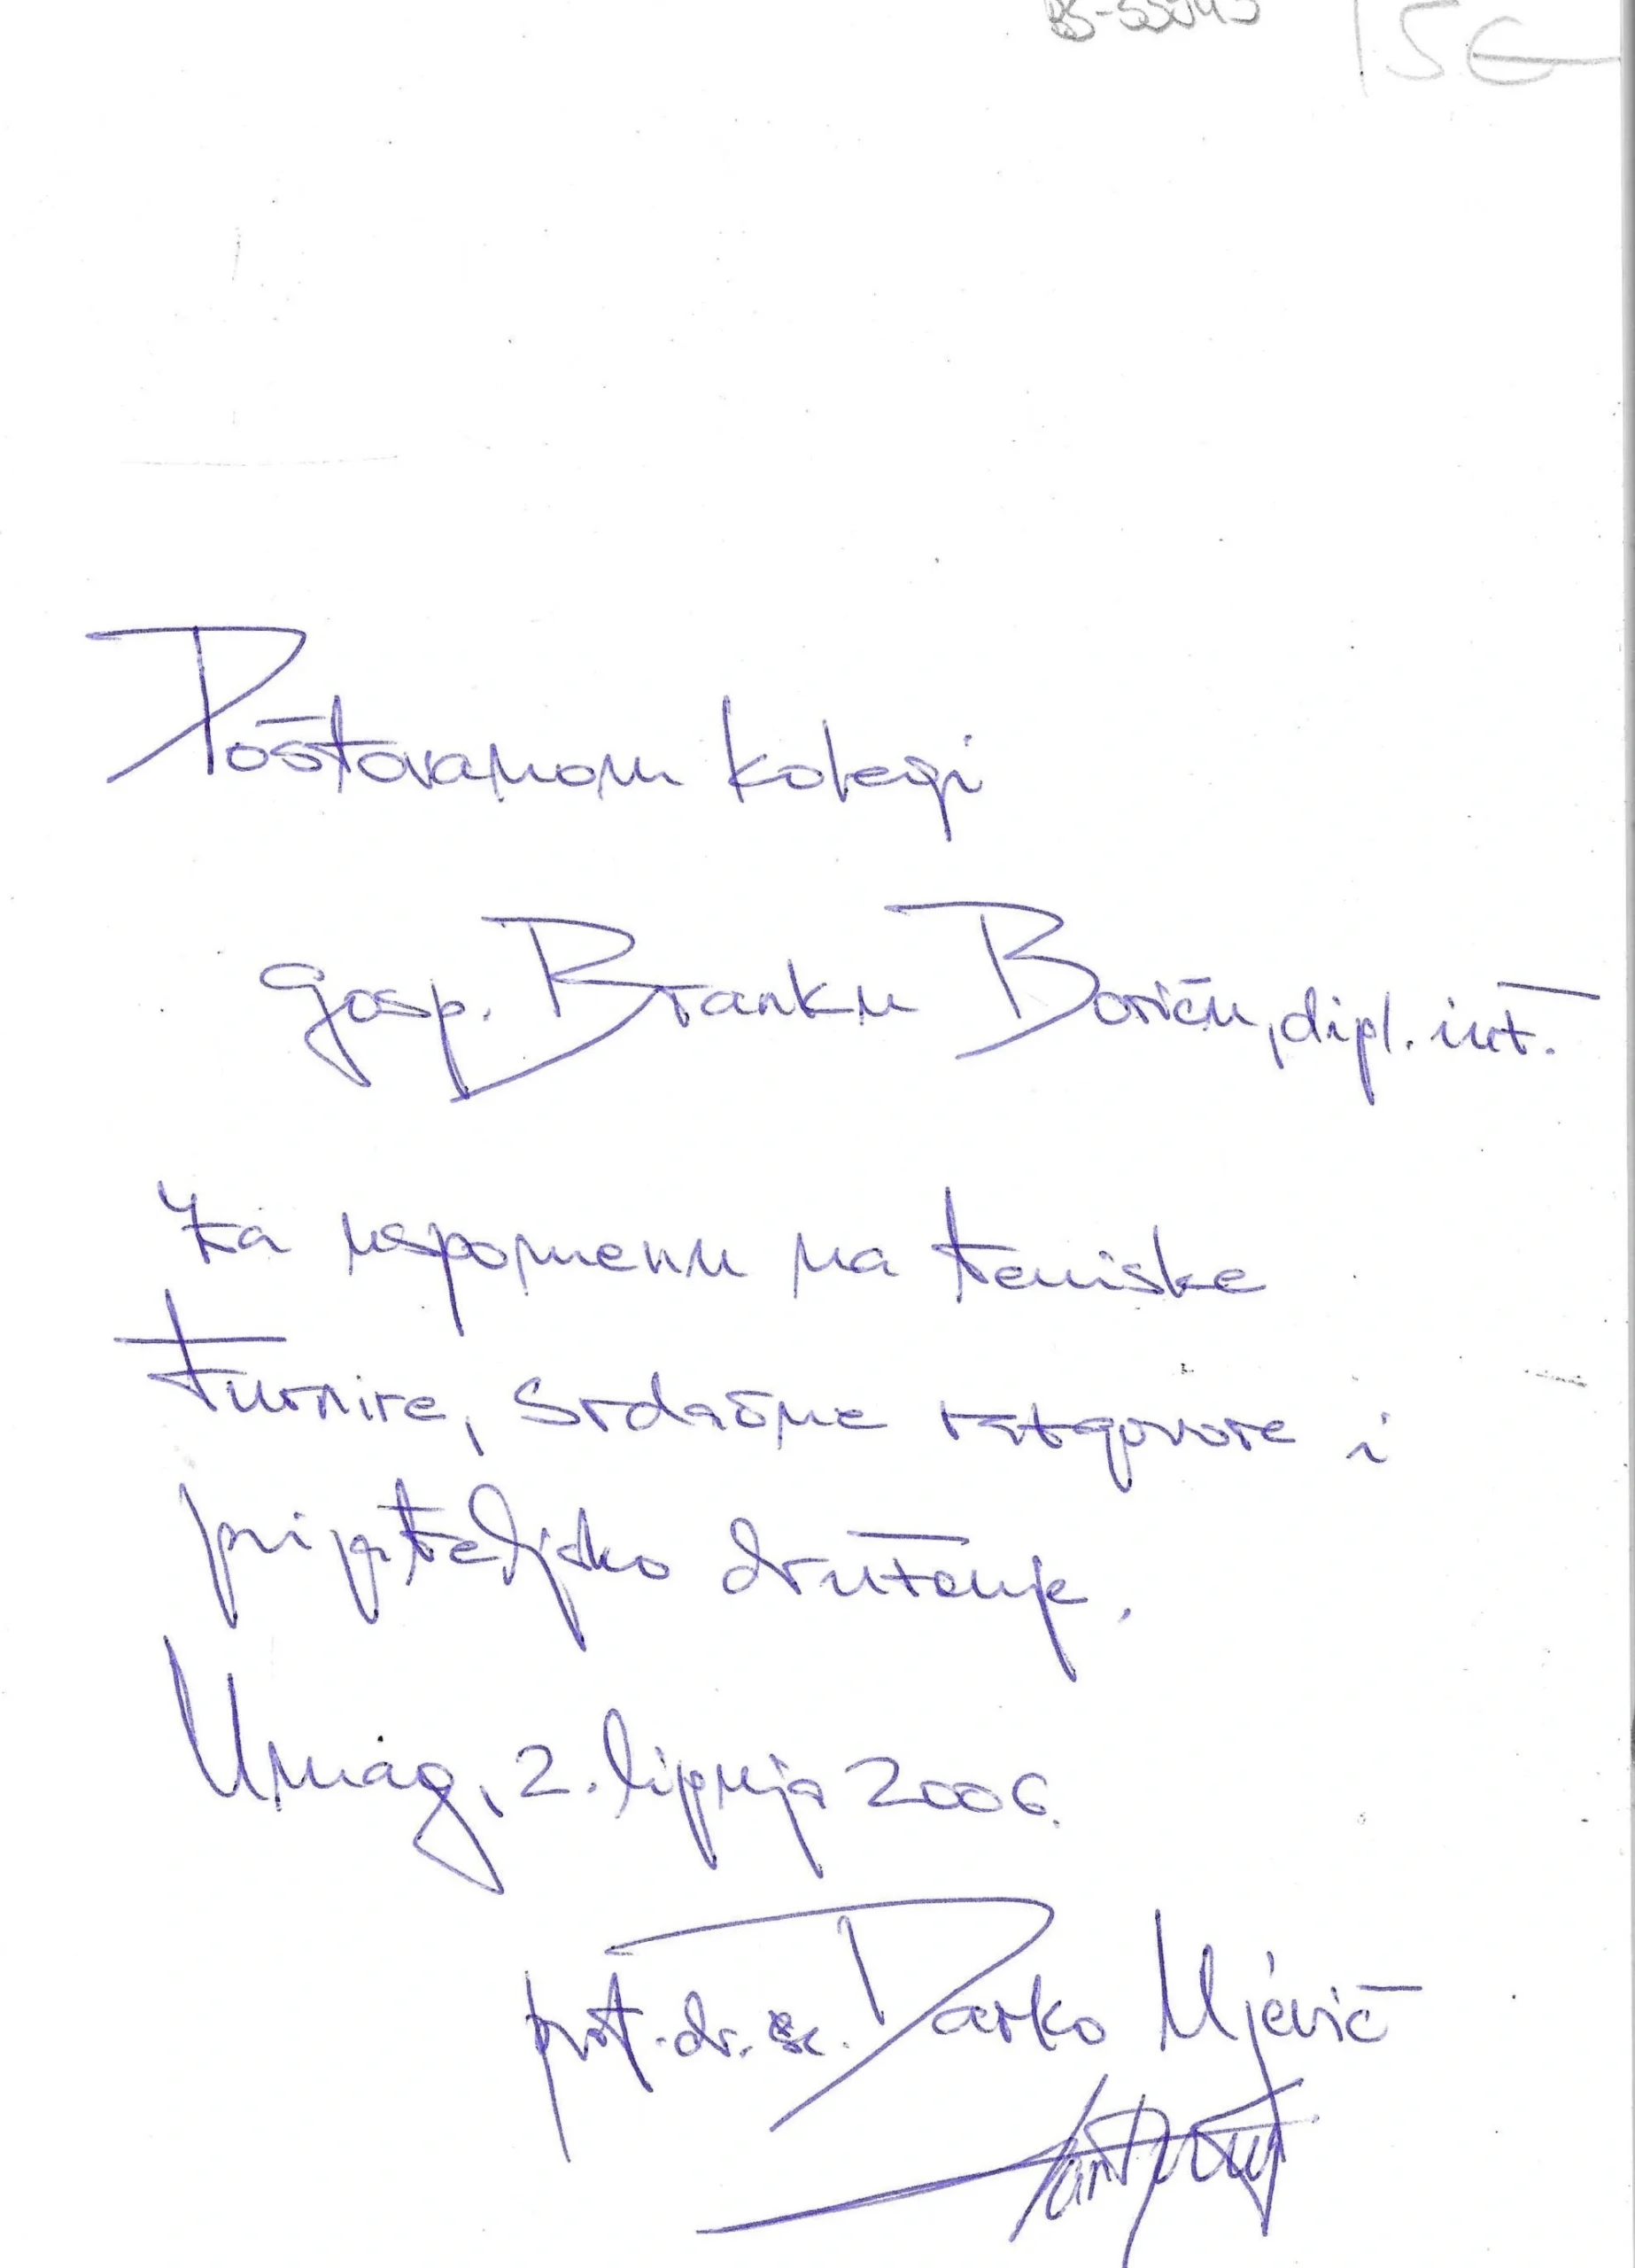 15€
Poštovanom kolegi
gosp. Branku Boriću, dipl. inž.
Za uspomenu na teniske
turnire, srdačne razgovore i
prijateljsko druženje.
Umag, 2. lipnja 2006.
prof. dr. sc. Darko Ujević